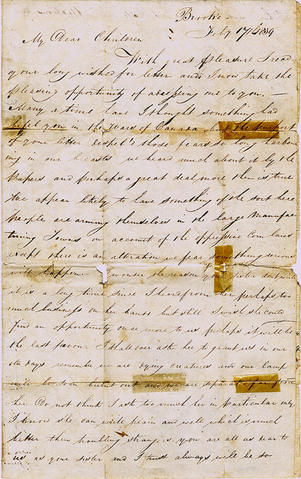 Brooke
Feby 17th 1839
My Dear Children
With great pleasure I read
your long wished for letter and now take the
pleasing opportunity of answering one to you
Many a time has I thought something had
in the wars of Canada the
of your letter those fears so long
ing in our breasts we heard much about it by the
Papers and perhaps a great deal more then is true
We appear likely to have something of the sort here
people are arming themselves in the large Manufac
turing Towns on account of the oppressive Corn laws
there is an alteration we fear something serious
will happen the reason
it is a long time since I heard from her perhaps too
much business on her hands but still I wish she could
find an opportunity once more to us perhaps it will be
the last favour I shall ever ask her to grant us in our
old days remember we are dying creatures and our lamp
will
her Do not think I ask too much her in particular only
I know she can write plain and well, which is much
better then troubling strangers you are all as near to
us as your sister and I trust always will be so